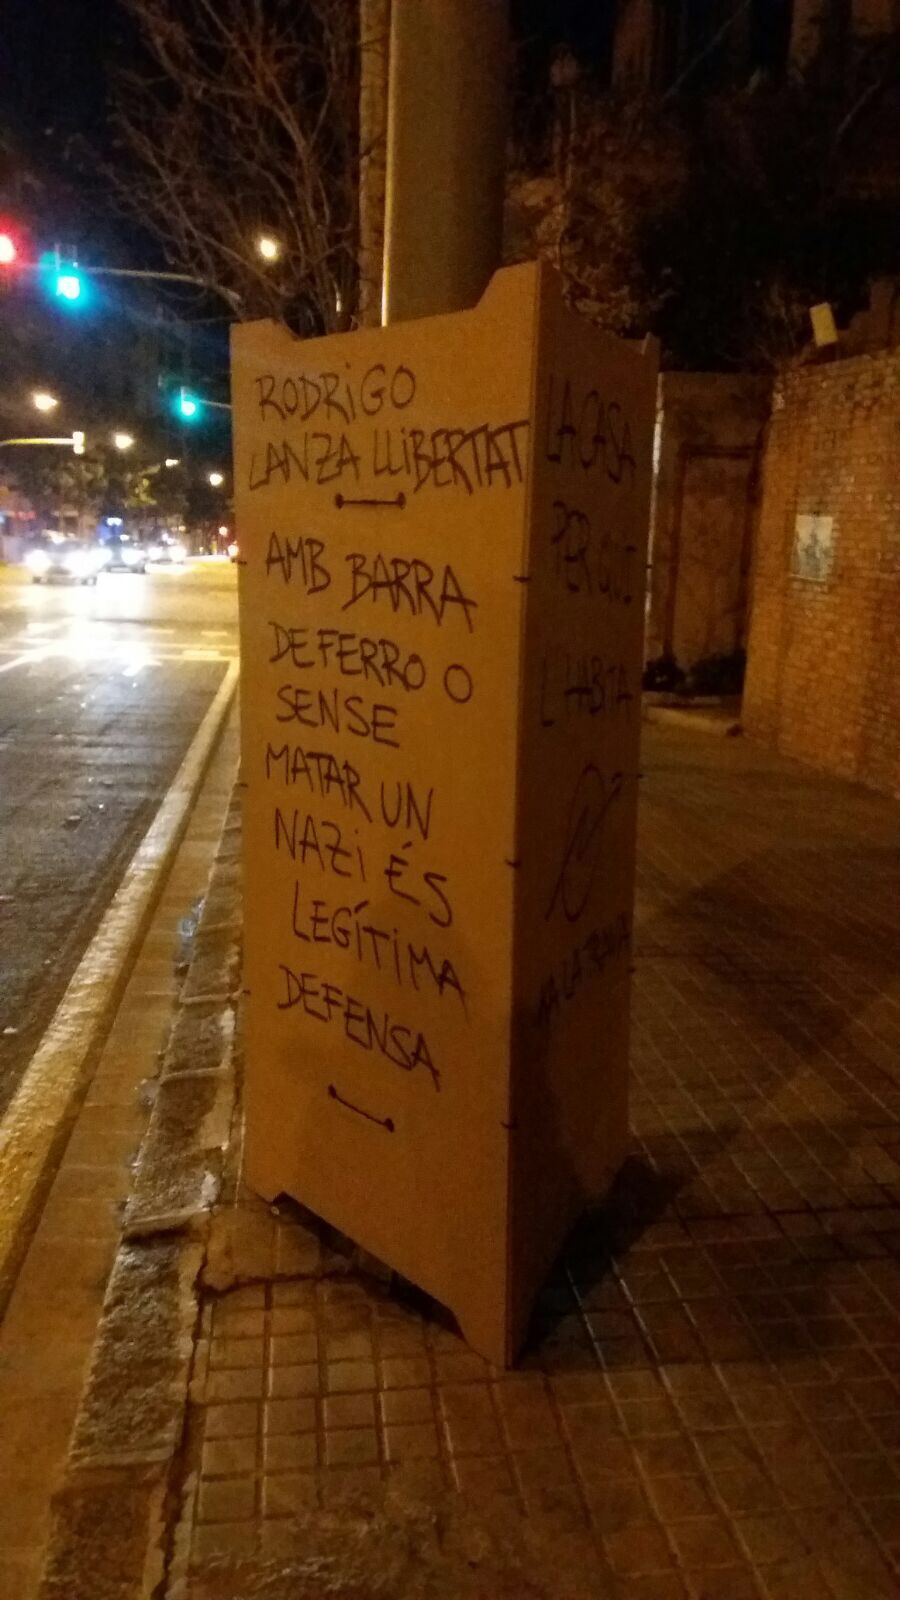 RODRiGO
LANZA LLiBERTAT
AMB BARRA
DE FERRO O
SENSE
MATAR UN
NAZi ÉS
LEGÍTiMA
DEFENSA
LA CASA
PER QUI
L'HABITA